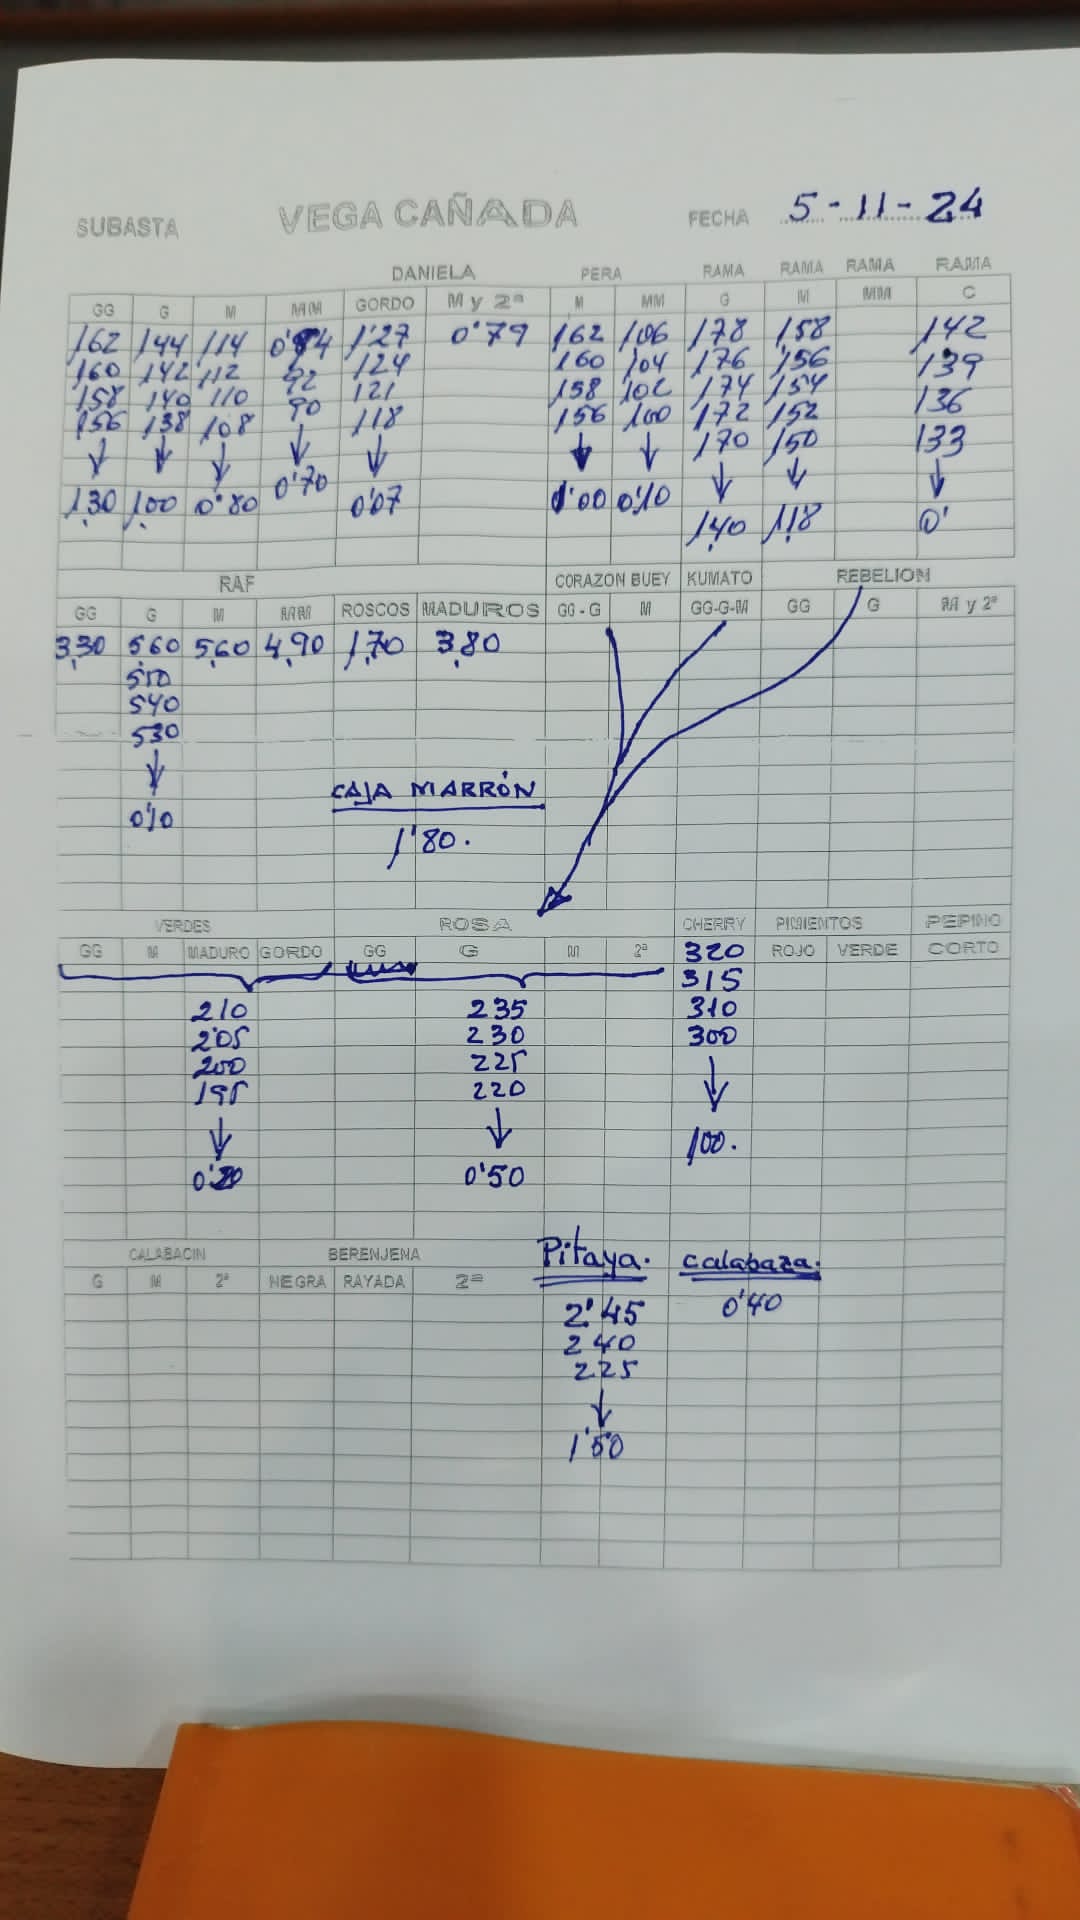 SUBASTA VEGA CAÑADA FECHA 5-11-24
DANIELA PERA RAMA RAMA RAMA RAMA
GG G M MM GORDO M y 2ª M MM G M MM C
162 144 114 1'27 0'79 162 106 178 158 142
160 142 112 92 124 160 104 176 156 139
158 140 110 90 121 158 102 174 154 136
156 138 108 118 156 100 172 152 133
170 150
1,30 1,00 0'80 0'70 0'07 1'00 0'10 1,40 1,18 0'
RAF CORAZON BUEY KUMATO REBELION
GG G M MM ROSCOS MADUROS GG - G M GG-G-M GG G M y 2ª
3,30 5,60 5,60 4,90 1,70 3,80
550
540
530
CAJA MARRÓN
0'10
1'80.
VERDES ROSA CHERRY PIMIENTOS PEPINO
GG M MADURO GORDO GG G M 2ª 320 ROJO VERDE CORTO
315
210 235 310
205 230 300
200 225
195 220
100.
0'50
CALABACIN BERENJENA Pitaya. calabaza.
G M 2ª NEGRA RAYADA 2ª
2'45 0'40
240
225
1'50